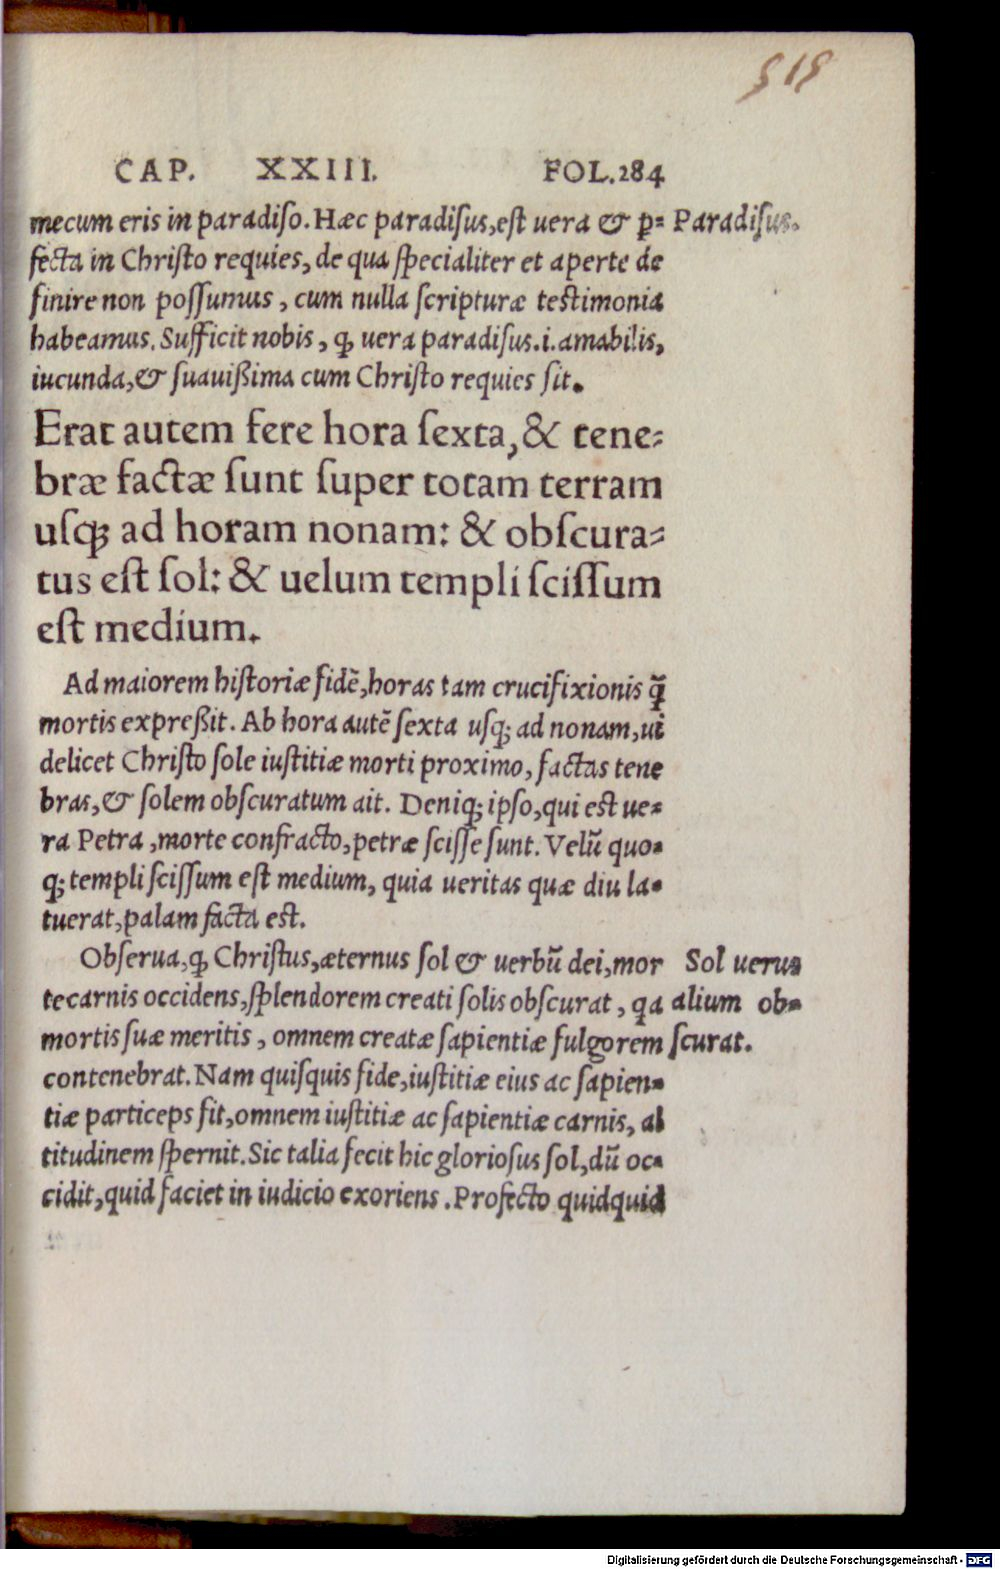 515
CAP. XXIII. FOL.284
mecum eris in paradiso. Hæc paradisus, est uera & p=
Paradisus.
fecta in Christo requies, de qua specialiter et aperte de
finire non possumus, cum nulla scripturæ testimonia
habeamus. Sufficit nobis, ꝙ uera paradisus .i. amabilis,
iucunda, & suauißima cum Christo requies sit.
Erat autem fere hora sexta, & tene=
bræ factæ sunt super totam terram
usqꝫ ad horam nonam: & obscura=
tus est sol: & uelum templi scissum
est medium.
Ad maiorem historiæ fidē, horas tam crucifixionis q̄
mortis expreßit. Ab hora autē sexta usqꝫ ad nonam, ui
delicet Christo sole iustitiæ morti proximo, factas tene
bras, & solem obscuratum ait. Deniqꝫ ipso, qui est ue=
ra Petra, morte confracto, petræ scisse sunt. Velū quo=
qꝫ templi scissum est medium, quia ueritas quæ diu la=
tuerat, palam facta est.
Obserua, ꝙ Christus, æternus sol & uerbū dei, mor
te carnis occidens, splendorem creati solis obscurat, qa
mortis suæ meritis, omnem creatæ sapientiæ fulgorem
Sol uerus
alium ob=
scurat.
contenebrat. Nam quisquis fide, iustitiæ eius ac sapien=
tiæ particeps fit, omnem iustitiæ ac sapientiæ carnis, al
titudinem spernit. Sic talia fecit hic gloriosus sol, dū oc=
cidit, quid faciet in iudicio exoriens. Profecto quidquid
Digitalisierung gefördert durch die Deutsche Forschungsgemeinschaft - DFG